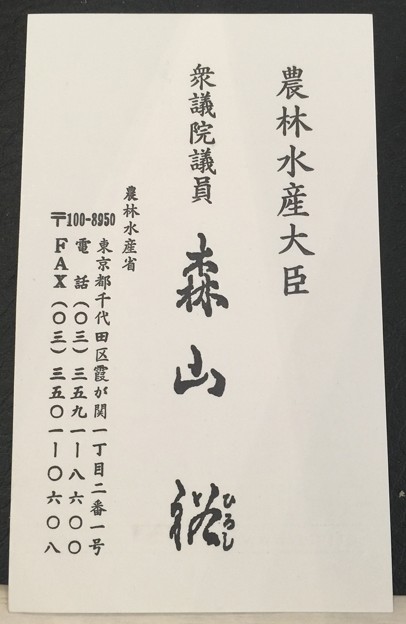 農林水産大臣
衆議院議員 森山 裕
ひろし
農林水産省
東京都千代田区霞が関一丁目二番一号
〒100-8950
電話(〇三)三五九一ー八六〇〇
FAX(〇三)三五〇一ー〇六〇八